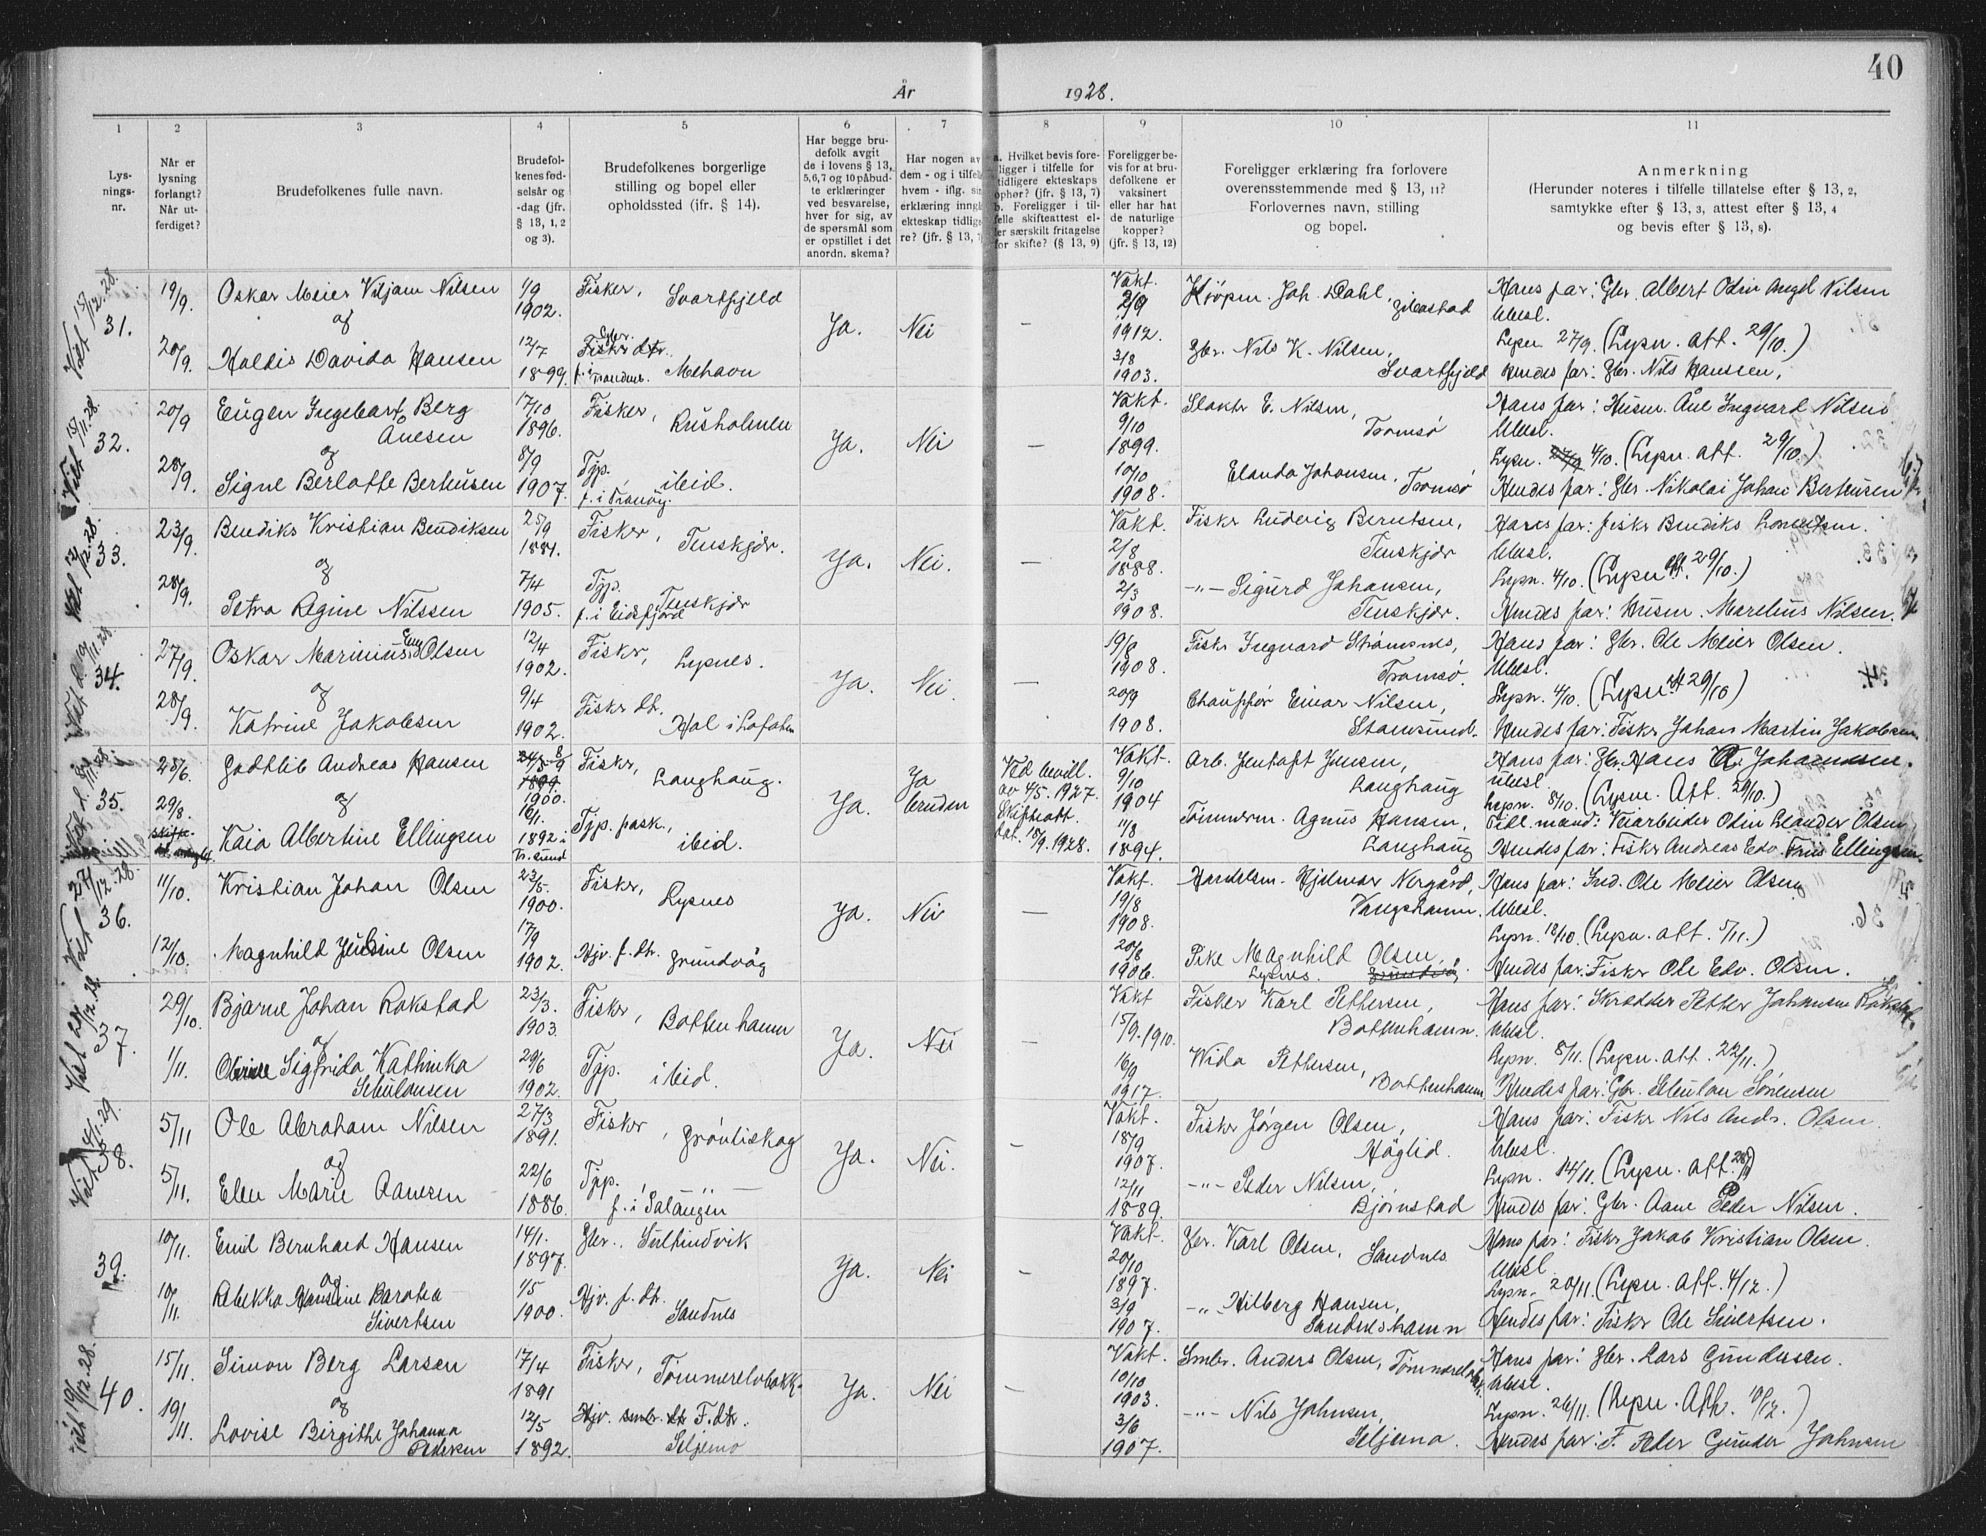 40
År 1928.
1 2 3 4 5 6 7 8 9 10 11
Lys-
nings-
nr.
Når er
lysning
forlangt?
Når ut-
ferdiget?
Brudefolkenes fulle navn.
Brudefol-
kenes fød-
selsår og
-dag (jfr.
§ 13, 1, 2
og 3).
Brudefolkenes borgerlige
stilling og bopel eller
opholdssted (ifr. § 14).
Har begge bru-
defolk avgit
de i lovens § 13,
5,6,7 og 10 påbud-
te erklæringer
ved besvarelse,
hver for sig, av
de spørsmål som
er opstillet i det
anordn. skema?
Har nogen av
dem - og i tilfelle
hvem - iflg. sin
erklæring inngå
ekteskap tidlige-
re? (jfr. § 13, 7
a. Hvilket bevis fore-
ligger i tilfelle for
tidligere ekteskaps
ophør? (jfr. § 13, 7)
b. Foreligger i til-
felle skifteattest el-
ler særskilt fritagelse
for skifte? (§ 13, 9)
Foreligger be-
vis for at bru-
defolkene er
vaksinert
eller har hat
de naturlige
kopper?
(jfr. § 13, 12)
Foreligger erklæring fra forlovere
overensstemmende med § 13, 11?
Forlovernes navn, stilling
og bopel.
Anmerkning
(Herunder noteres i tilfelle tillatelse efter § 13, 2,
samtykke efter § 13, 3, attest efter § 13, 4
og bevis efter § 13, 8).
31.
19/9. Oskar Meier Viljam Nilsen 1/9 1902. Fisker, Svartfjeld
og
20/9. Haldis Davida Hansen 12/7 1899. Mehavn
Ja. Nei –
Vakt. 1912. 3/8 1903.
Joh. Dahl,
Gbr. Nils K. Nilsen, Svartfjeld
Hans far: Gbr. Albert Odin Angel Nilsen
Ubesl.
Lysn. 27/9. (Lysn. att. 29/10.)
Hendes far: Gbr. Nils Hanssen,
32.
20/9 Eugen Ingebart Berg Anesen 17/10 1896. Fisker, Kusholmen
og
28/9. Signe Berlotte Berteusen 8/9 1907. Tjp. ibid. f. i Tranöy.
Ja. Nei –
Vakt. 9/10 1899. 10/10 1908.
E. Nilsen, Tromsø
Elanda Johansen, Tromsø
Ubesl.
Lysn. 4/10. (Lysn. att. 29/10.)
Hendes far: Gbr. Nikolai Johan Berteusen
33.
23/9. Bendiks Kristian Bendiksen 25/9 1881. Fisker, Tenskjær.
og
28/9. Petra Regine Nilssen 7/4 1905. Tjp. Tenskjær f. i Eidsfjord
Ja. Nei. –
Vakt. 2/8 1888. 2/3 1908.
Fisker Ludvig Berntsen, Tenskjær
-"- Sigurd Johansen, Tenskjær.
Ubesl.
Lysn. 4/10. (Lysn. att. 29/10.)
Hendes far: Husm. Marelius Nilsen.
34.
27/9. Oskar Marinius Olsen 12/4 1902. Fisker, Lysnes.
og
28/9. Katrine Jakobsen 9/4 1902. Fisker dtr. Hol i Lofoten
Ja. Nei. –
19/8 1908. 20/9 1908.
Fisker Ingvard Strømsnes, Tromsø.
Chauffør Einar Nilsen, Stamsund.
Hans far: Gbr. Ole Meier Olsen.
Ubesl.
Lysn. 4/10. (Lysn. att. 29/10)
Hendes far: Fisker Johan Martin Jakobsen
35.
28/6. Godtlib Andreas Hansen 1900. Fisker, Langhaug.
og
29/8. Kaia Albertine Ellingsen 1892 i Tr.sund Tjp. pask., ibid.
Ja. Ja bruden
Ved bevill. av 4/5. 1927. Skifteatt. dat. 15/9. 1928.
Vakt. 9/10 1904 11/8 1894.
Arb. Jentoft Jensen, Langhaug
Tømmerm. Agnus Hansen, Langhaug
Hans far: Gbr. Hans A. Johannesen.
Ubesl.
Lysn. 8/10. (Lysn. Att. 29/10.)
Till. mand: Veiarbeider Odin Elander Olsen
Hendes far: Fisker Andreas Edv. Friis Ellingsen
36.
11/10. Kristian Johan Olsen 23/5. 1900. Fisker, Lysnes
12/10. Magnhild Olsen 17/9 1902. Hjv. f. dtr. Grundvåg
Ja. Nei –
Vakt. 19/8 1908. 20/8 1906.
Handelsm. Hjalmar Nergård, Vangshamn.
Pike Magnhild Olsen, Lysnes.
Hans far: Ind. Ole Meier Olsen
Ubesl.
Lysn. 18/10. (Lysn. att. 5/11.)
Hendes far: Fisker Ole Edv. Olsen.
37.
29/10. Bjarne Johan Rokstad 23/3. 1903. Fisker, Bottenhamn
og
1/11. Sigfrida Kathinka 29/6 1902. Tjp. ibid.
Ja. Nei
Vakt 15/9. 1910. 16/9 1917.
Fisker Karl Pettersen, Bottenhamn.
Wida Pettersen, Bottenhamn
Hans far: Skrædder Petter Johansen Rokstad.
Ubesl.
Lysn. 8/11. (Lysn. att. 22/11.)
Hendes far: Gbr. Sørensen
38.
5/11 Ole Abraham Nilsen 27/3 1891. Fisker, Grøntiskog
og
5/11. Elen Marie Aanesen 22/6 1886. Tjp. f. i Salangen
Ja. Nei. –
Vakt. 18/9 1907. 12/11 1889.
Fisker Jørgen Olsen, Høglid.
-"- Peder Nilsen, Bjørnstad
Hans far: Fisker Nils Andr. Olsen.
Ubesl.
Lysn. 14/11. (Lysn. att.
Hendes far: Gbr. Aane Peder Nilsen.
39.
10/11. Emil Bernhard Hansen 14/1. 1897. Gbr.,
og
10/11. Rebekka Barohea Sivertsen 1/5 1900. Hjv. f. dtr. Sandnes
Ja. Nei –
Vakt. 20/10 1897. 3/9 1907.
Gbr. Karl Olsen, Sandnes
-"- Hilberg Hansen, Sandneshamn
Hans far: Fisker Jakob Kristian Olsen.
Ubesl.
Lysn. 20/11. (Lysn. Att. 4/12.)
Hendes far: Fisker Ole Sivertsen.
40.
15/11. Simon Berg Larsen 17/4 1891 Fisker, Tømmerelvbakk.
og
19/11. Lovise Birgithe Johanna Pedersen 12/5 1892. Hjv. F. dtr. Seljemo
Ja. Nei –
Vakt. 10/10 1903. 3/6 1907.
Smbr. Anders Olsen,
-"- Nils Johnsen, Seljemo.
Hans far: Gbr. Lars Gundersen.
Ubesl.
Lysn. 26/11. (Lysn. Att. 10/12.)
Hendes far: F. Peder Gunder Johnsen